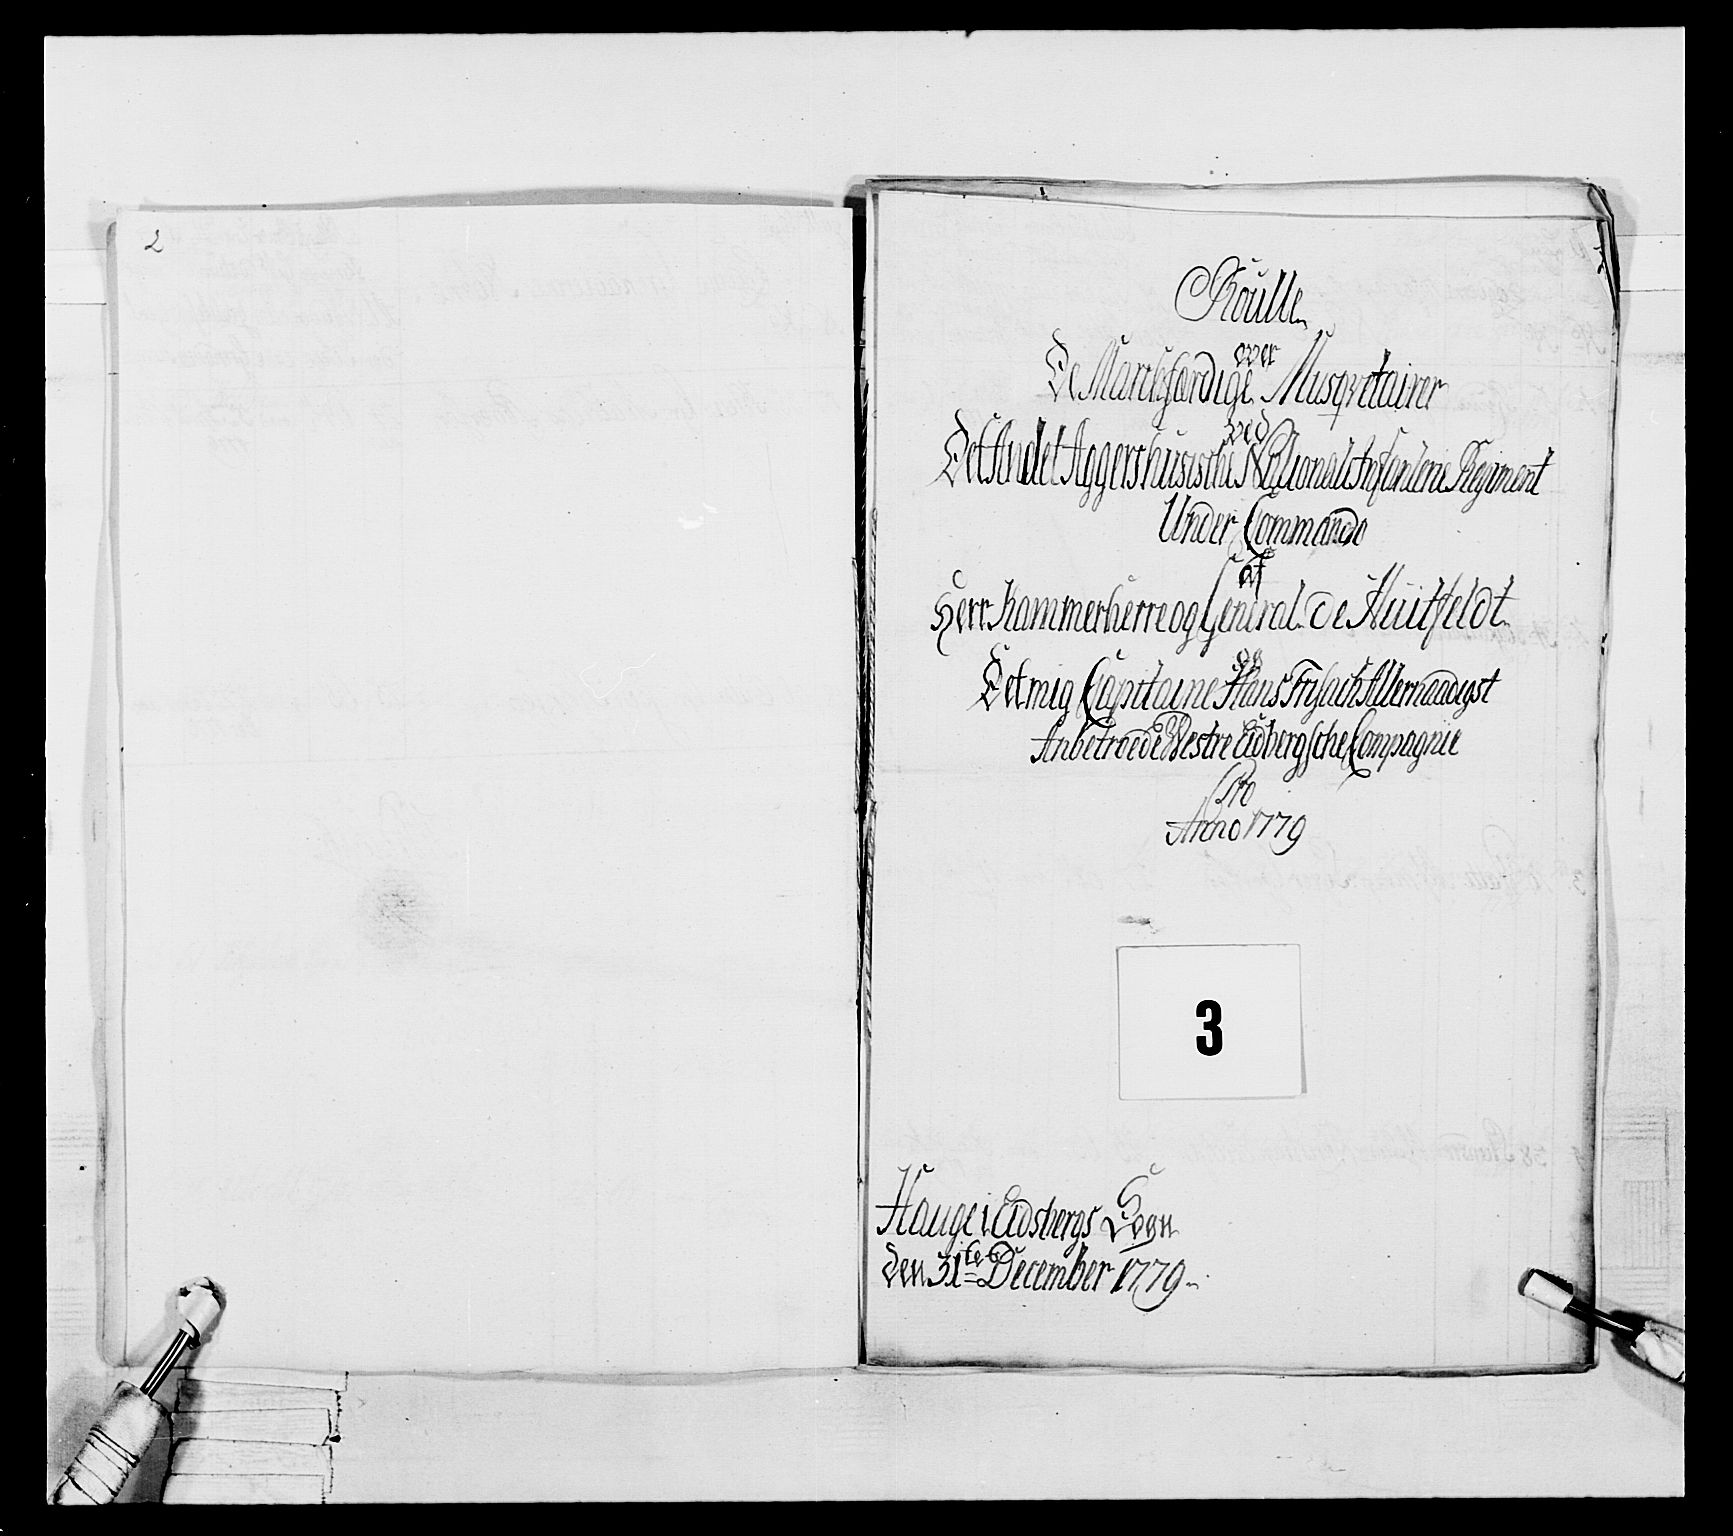 2
Roulle
over
De Marchfærdige Musqvetairer
ved
Det Andet Aggershusische National Infanterie Regiment
Under Commando
af
Herr Kammerherre og General de Huitfeldt
og
Det mig Capitaine Hans Frysach Allernaadigst
Anbetroede Westre Eidbergsche Compagnie
Pro
Anno 1779
3
Hauge i Eidsbergs Sogn
den 31te December 1779